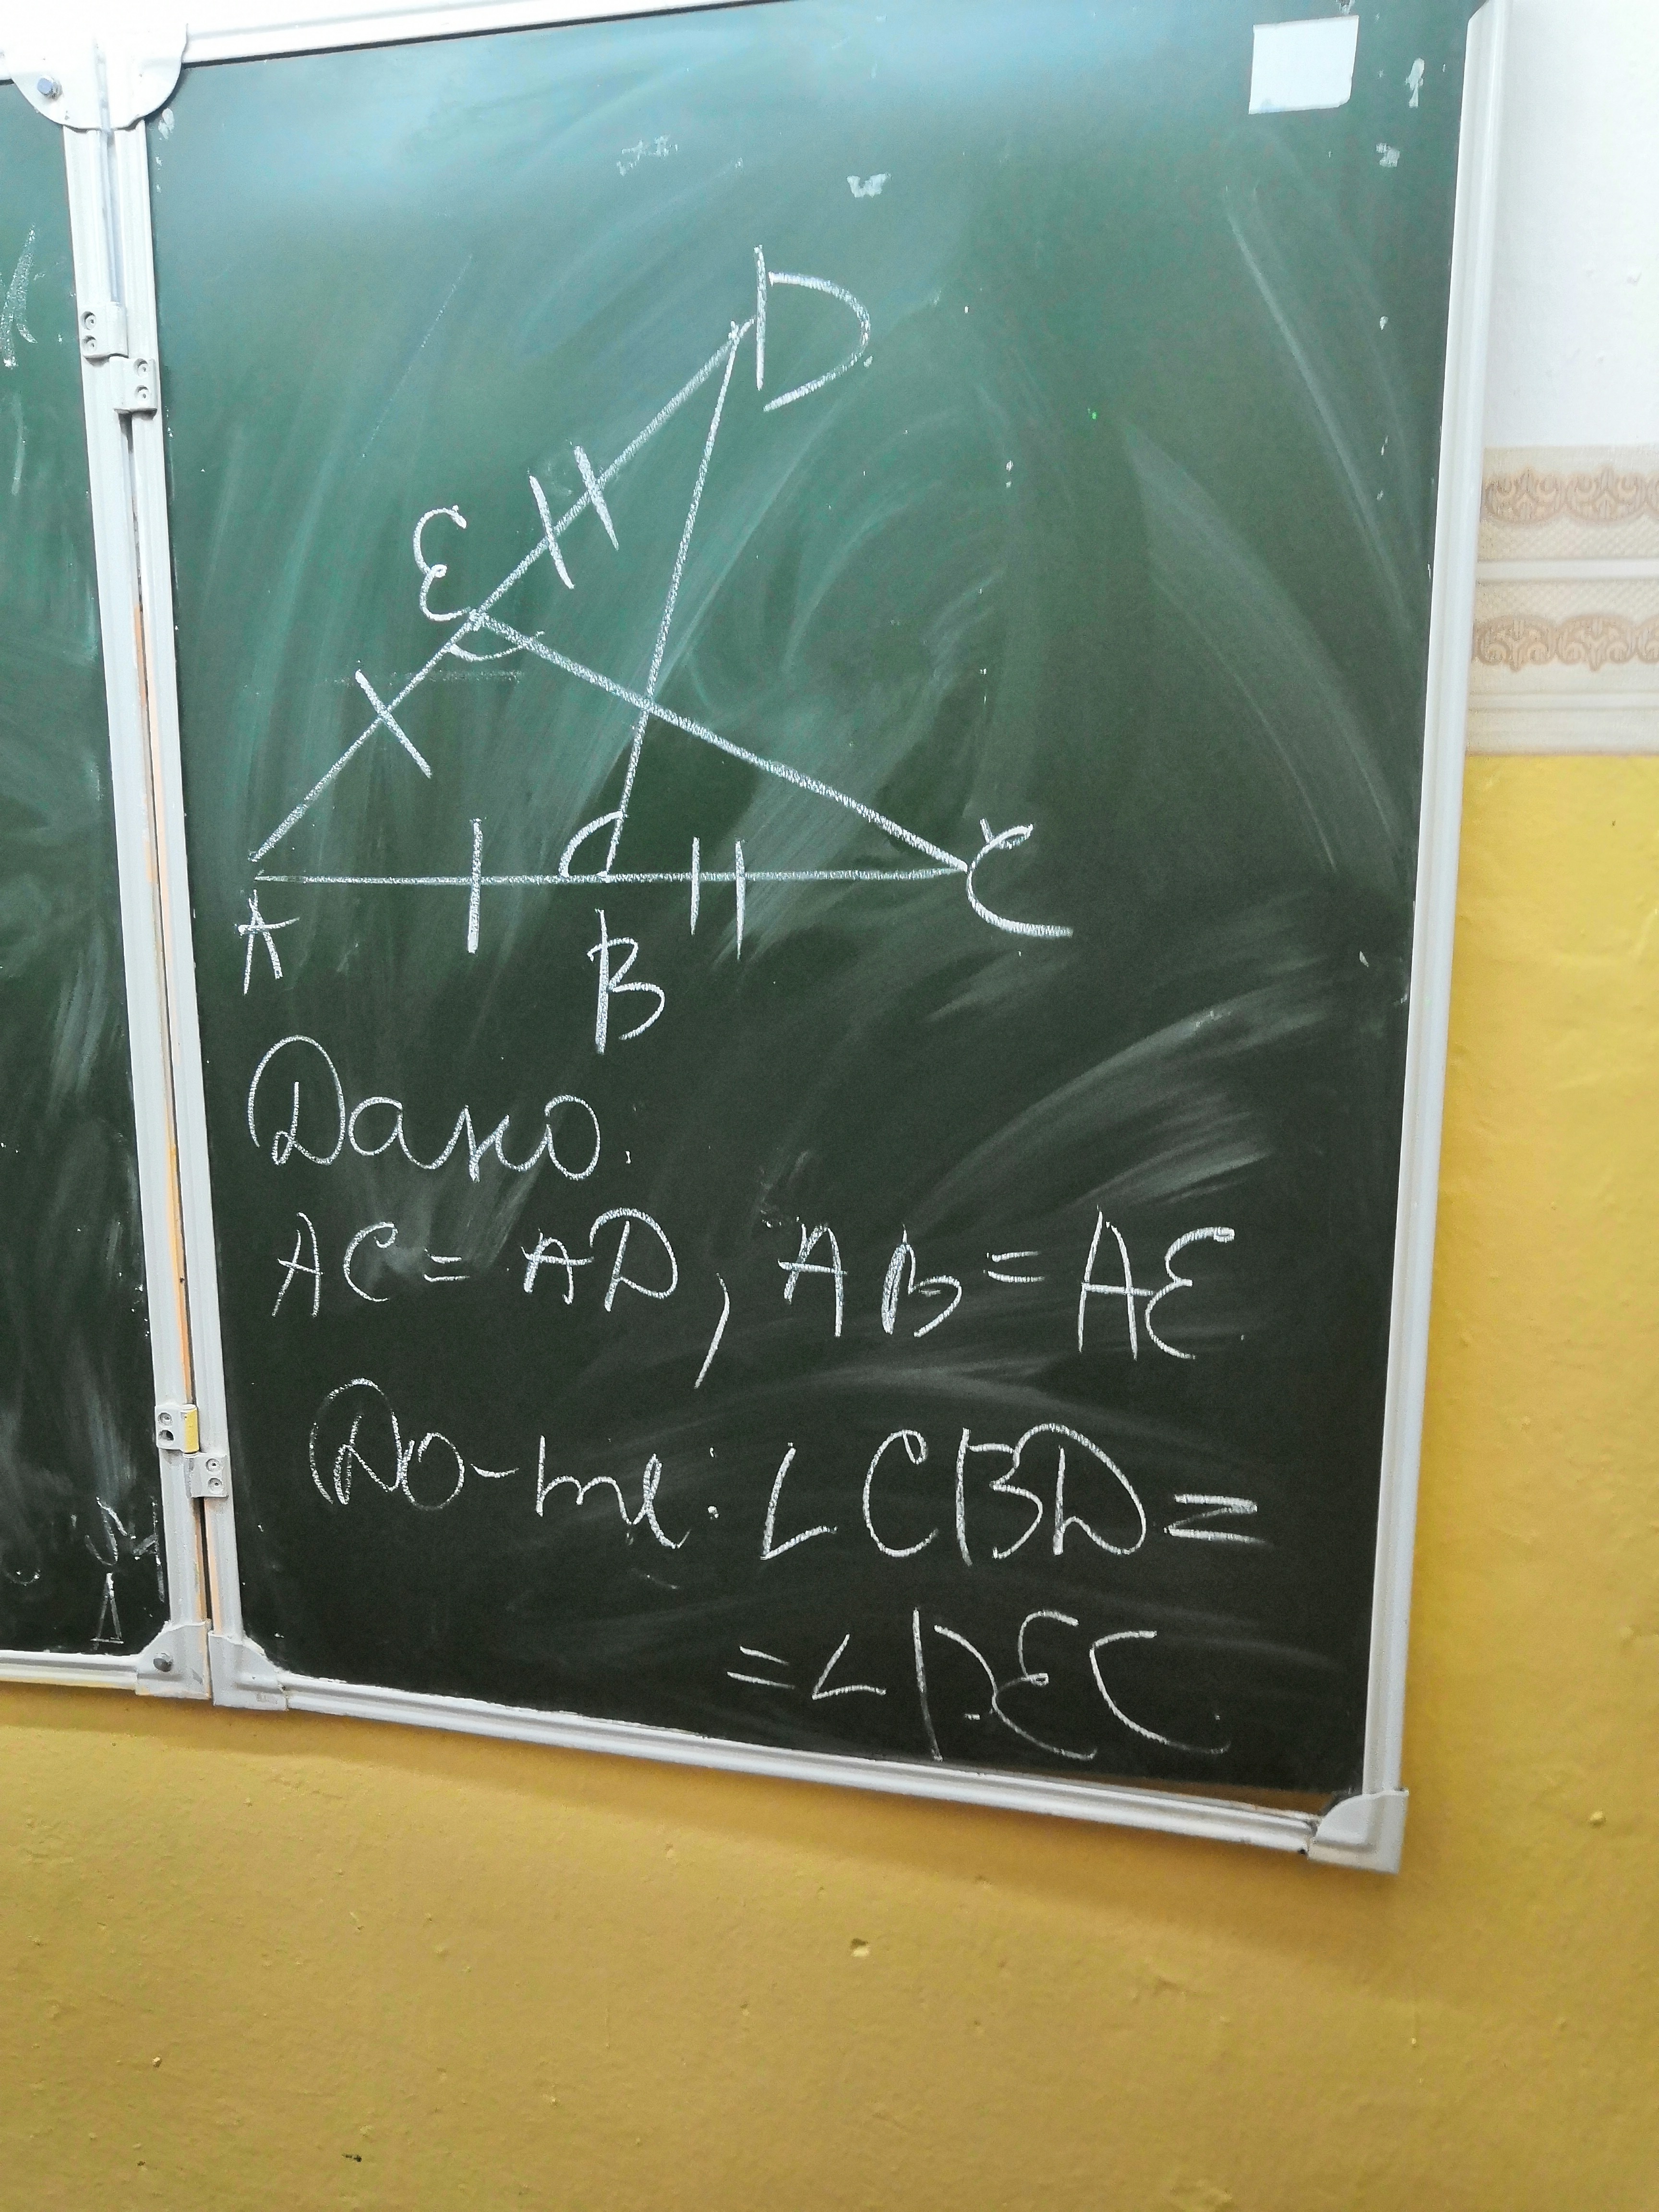 D
E
A
B
C
Дано:
AC = AD, AB = AE
До-ть: ∠CBD =
= ∠DEC